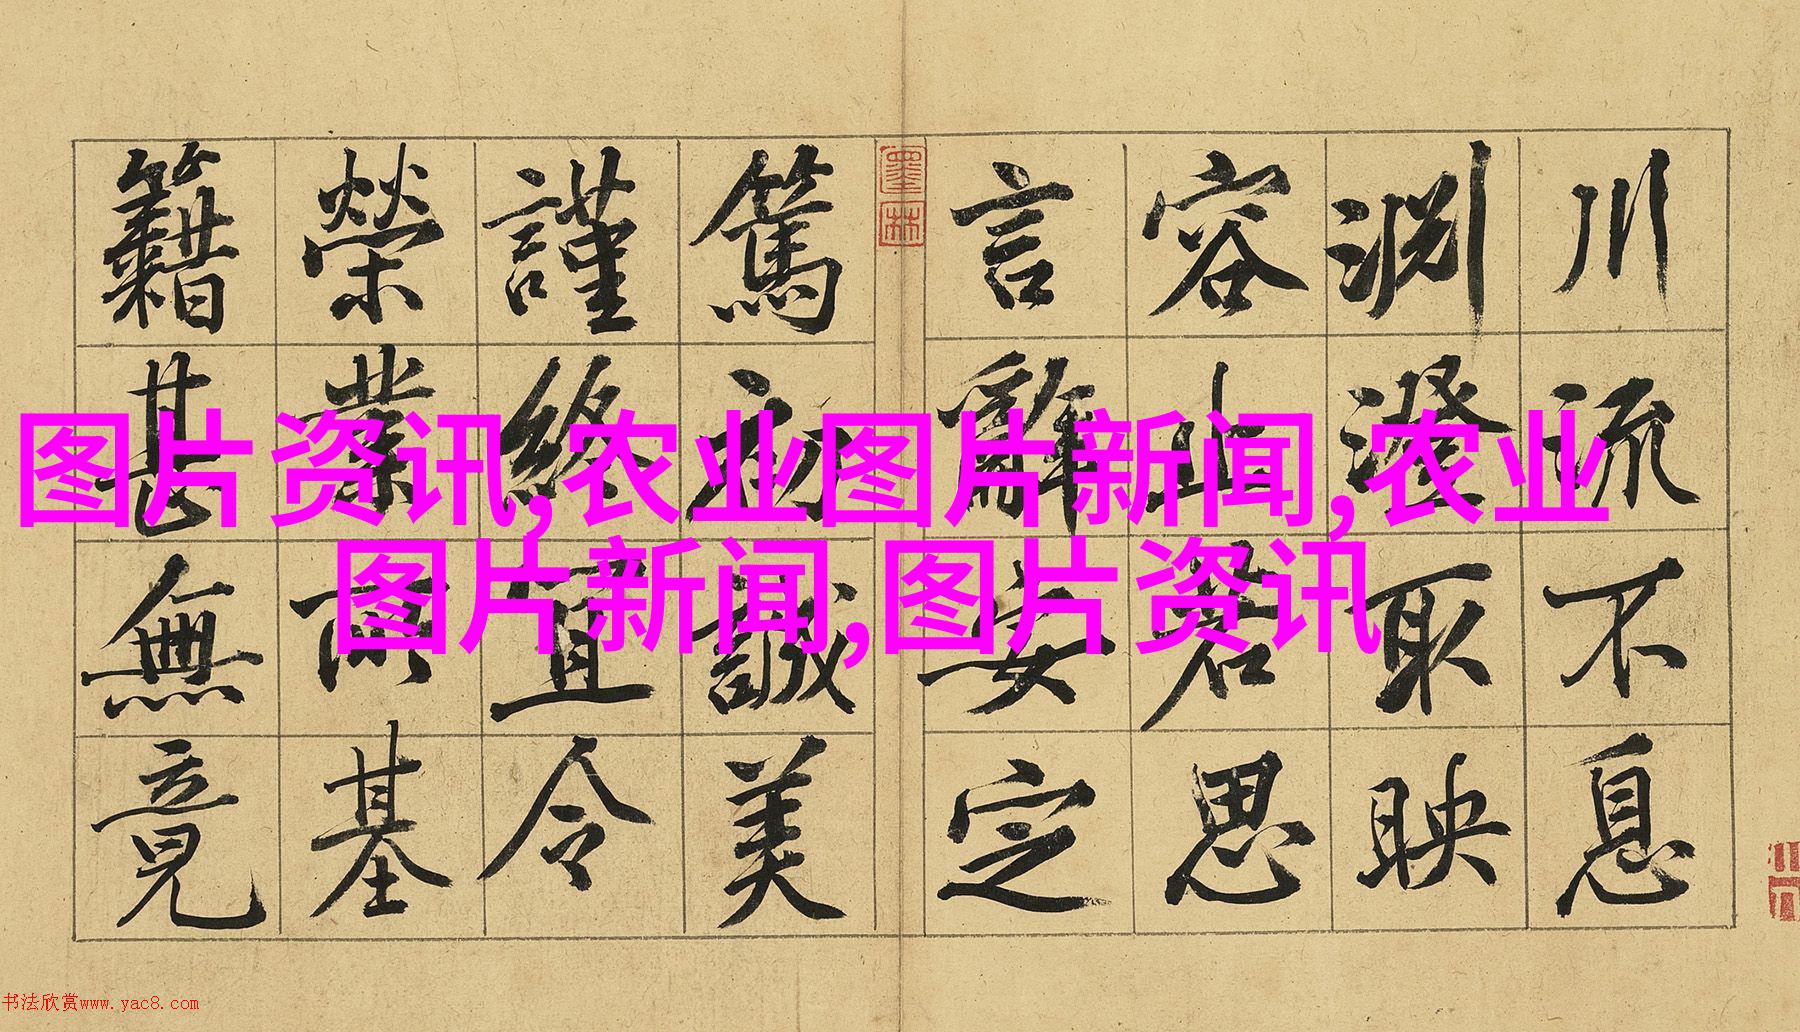 川流不息
淵澄取映
容止若思
言辭安定
篤初誠美
謹終宜令
榮業所基
籍甚無竟
墨林
图片资讯,农业图片新闻,农业
图片新闻,图片资讯
书法欣赏www.yac8.com